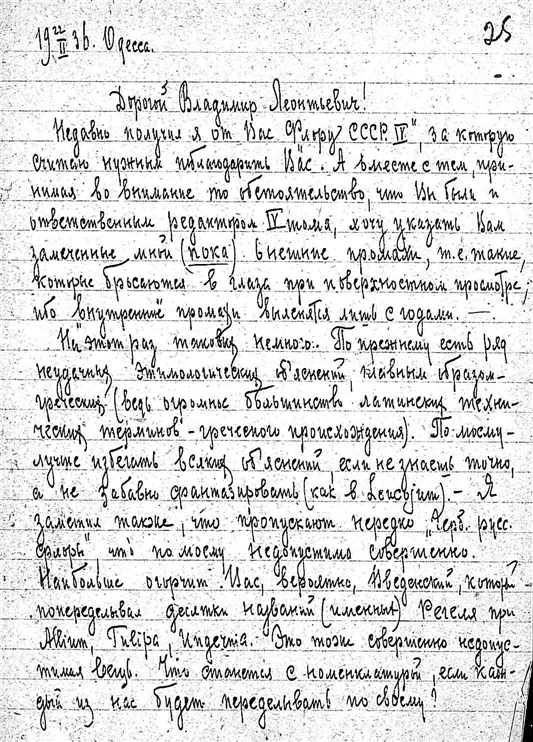 19 22/II 36. Одесса.
25
Дорогой Владимир Леонтьевич!
Недавно получил я от Вас „Флору СССР IV", за которую
считаю нужным поблагодарить Вас. А вместе с тем, при-
нимая во внимание то обстоятельство, что Вы были и
ответственным редактором IV тома, хочу указать Вам
замеченные мной (пока) внешние промахи, т.е. такие,
которые бросаются в глаза при поверхностном просмотре,
ибо внутренние промахи выяснятся лишь с годами. —.
На этот раз таковых немного. По прежнему есть ряд
неудачных этимологических об'яснений, главным образом-
греческих (ведь огромное большинство латинских техни-
ческих терминов - греческого происхождения). По-моему-
лучше избегать всяких об'яснений, если не знаешь точно,
а не забавно фантазировать (как в Leucojum). - Я
заметил также, что пропускают нередко „Черв. русс.
флоры" что по моему недопустимо совершенно.
Наибольше огорчит Вас, вероятно, Введенский, который
попеределывал десятки названий (именных) Регеля при
Allium, Tulipa, Ungernia. Это тоже совершенно недопус-
тимая вещь. Что станется с номенклатурой, если каж-
дый из нас будет переделывать по своему?